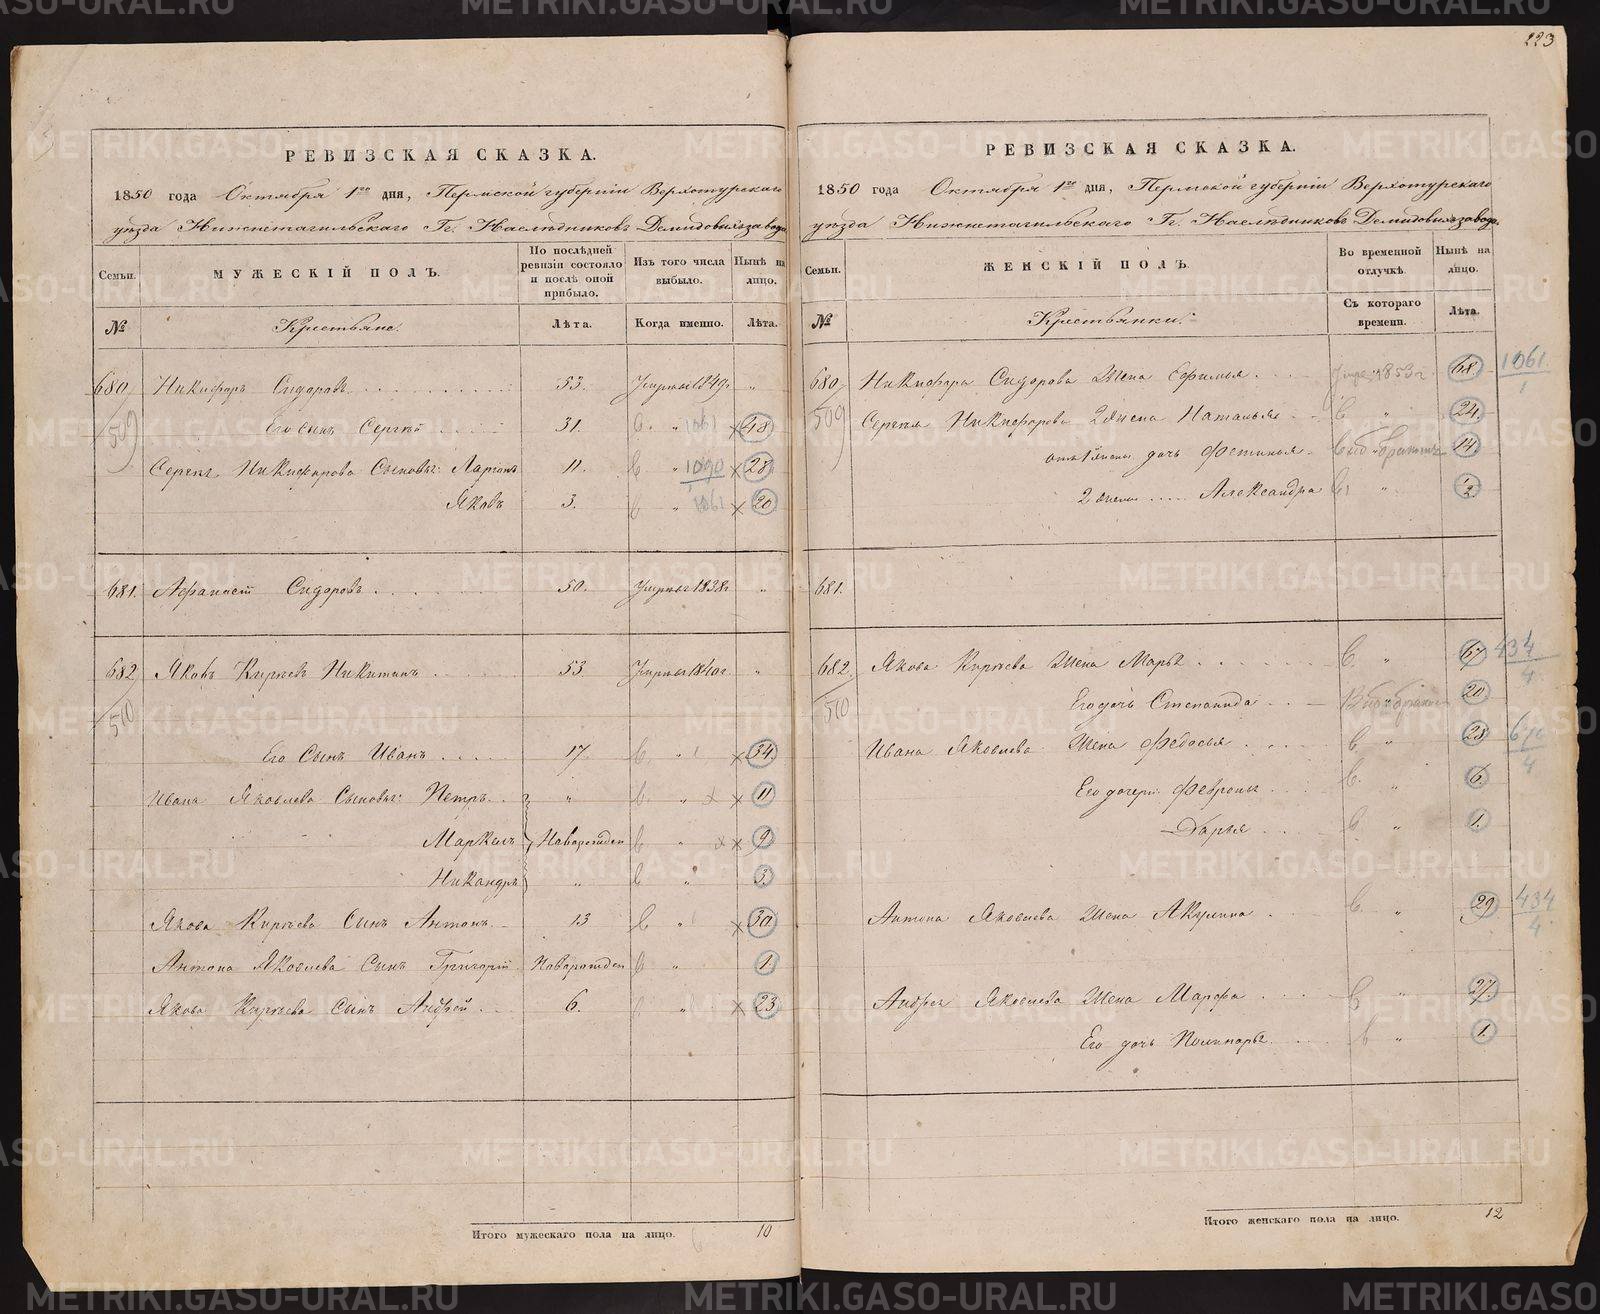 223
РЕВИЗСКАЯ СКАЗКА.
1850 года Октября 1го дня, Пермской губернiи Верхотурскаго
уѣзда Нижнетагильскаго Гг. Наслѣдниковъ Демидовыхъ завода
Семьи.
МУЖЕСКIЙ ПОЛЪ.
По послѣдней ревизiи состояло и послѣ оной прибыло.
Изъ того числа выбыло.
Нынѣ на лицо.
№
Крестьяне.
Лѣта.
Когда именно.
Лѣта.
680 Никифоръ Сидоровъ 53. Умеръ 1849г. "
509 Его сынъ Сергѣй 31. 1061 48
Сергѣя Никифорова Сыновья: Ларiонъ 11. " 1090 28
Яковъ 3. " 1061 20
681. Афанасiй Сидоровъ 50. Умеръ 1838г "
682 Яковъ Кирѣевъ Никитинъ 53 Умеръ 1840г. "
510
Его Сынъ Иванъ 17 " 34.
Ивана Яковлева Сыновья: Петръ " " 11
Маркелъ Новорожден " 9
Никандръ " " 3.
Якова Кирѣева Сынъ Антонъ 13 " 30
Антона Яковлева Сынъ Григорiй Новорожден " 1.
Якова Кирѣева Сынъ Андрей 6. " 23
Итого мужескаго пола на лицо. 10
РЕВИЗСКАЯ СКАЗКА.
1850 года Октября 1го дня, Пермской губернiи Верхотурскаго
уѣзда Нижнетагильскаго Гг. Наслѣдниковъ Демидовыхъ завода.
Семьи.
ЖЕНСКIЙ ПОЛЪ.
Во временной отлучкѣ.
Нынѣ на лицо.
№
Крестьянки.
Съ котораго времени.
Лѣта.
680 Никифора Сидорова Жена Ефимья 1853г. 68. 1061
509 Сергѣя Никифорова 2 Жена Наталья " 24
дочь Фетинья 14
2 жены Александра " 2
681.
682. Якова Кирѣева Жена Марья " 67 434
4
510 Его дочь Степанида 20
Ивана Яковлева Жена Федосья " 28
4
Его дочери: Февронья " 6
Дарья " 1.
Антона Яковлева Жена Акулина " 29 434
4
Андрея Яковлева Жена Марфа " 27.
Его дочь " 1.
Итого женскаго пола на лицо. 12
METRIKI.GASO-URAL.RU